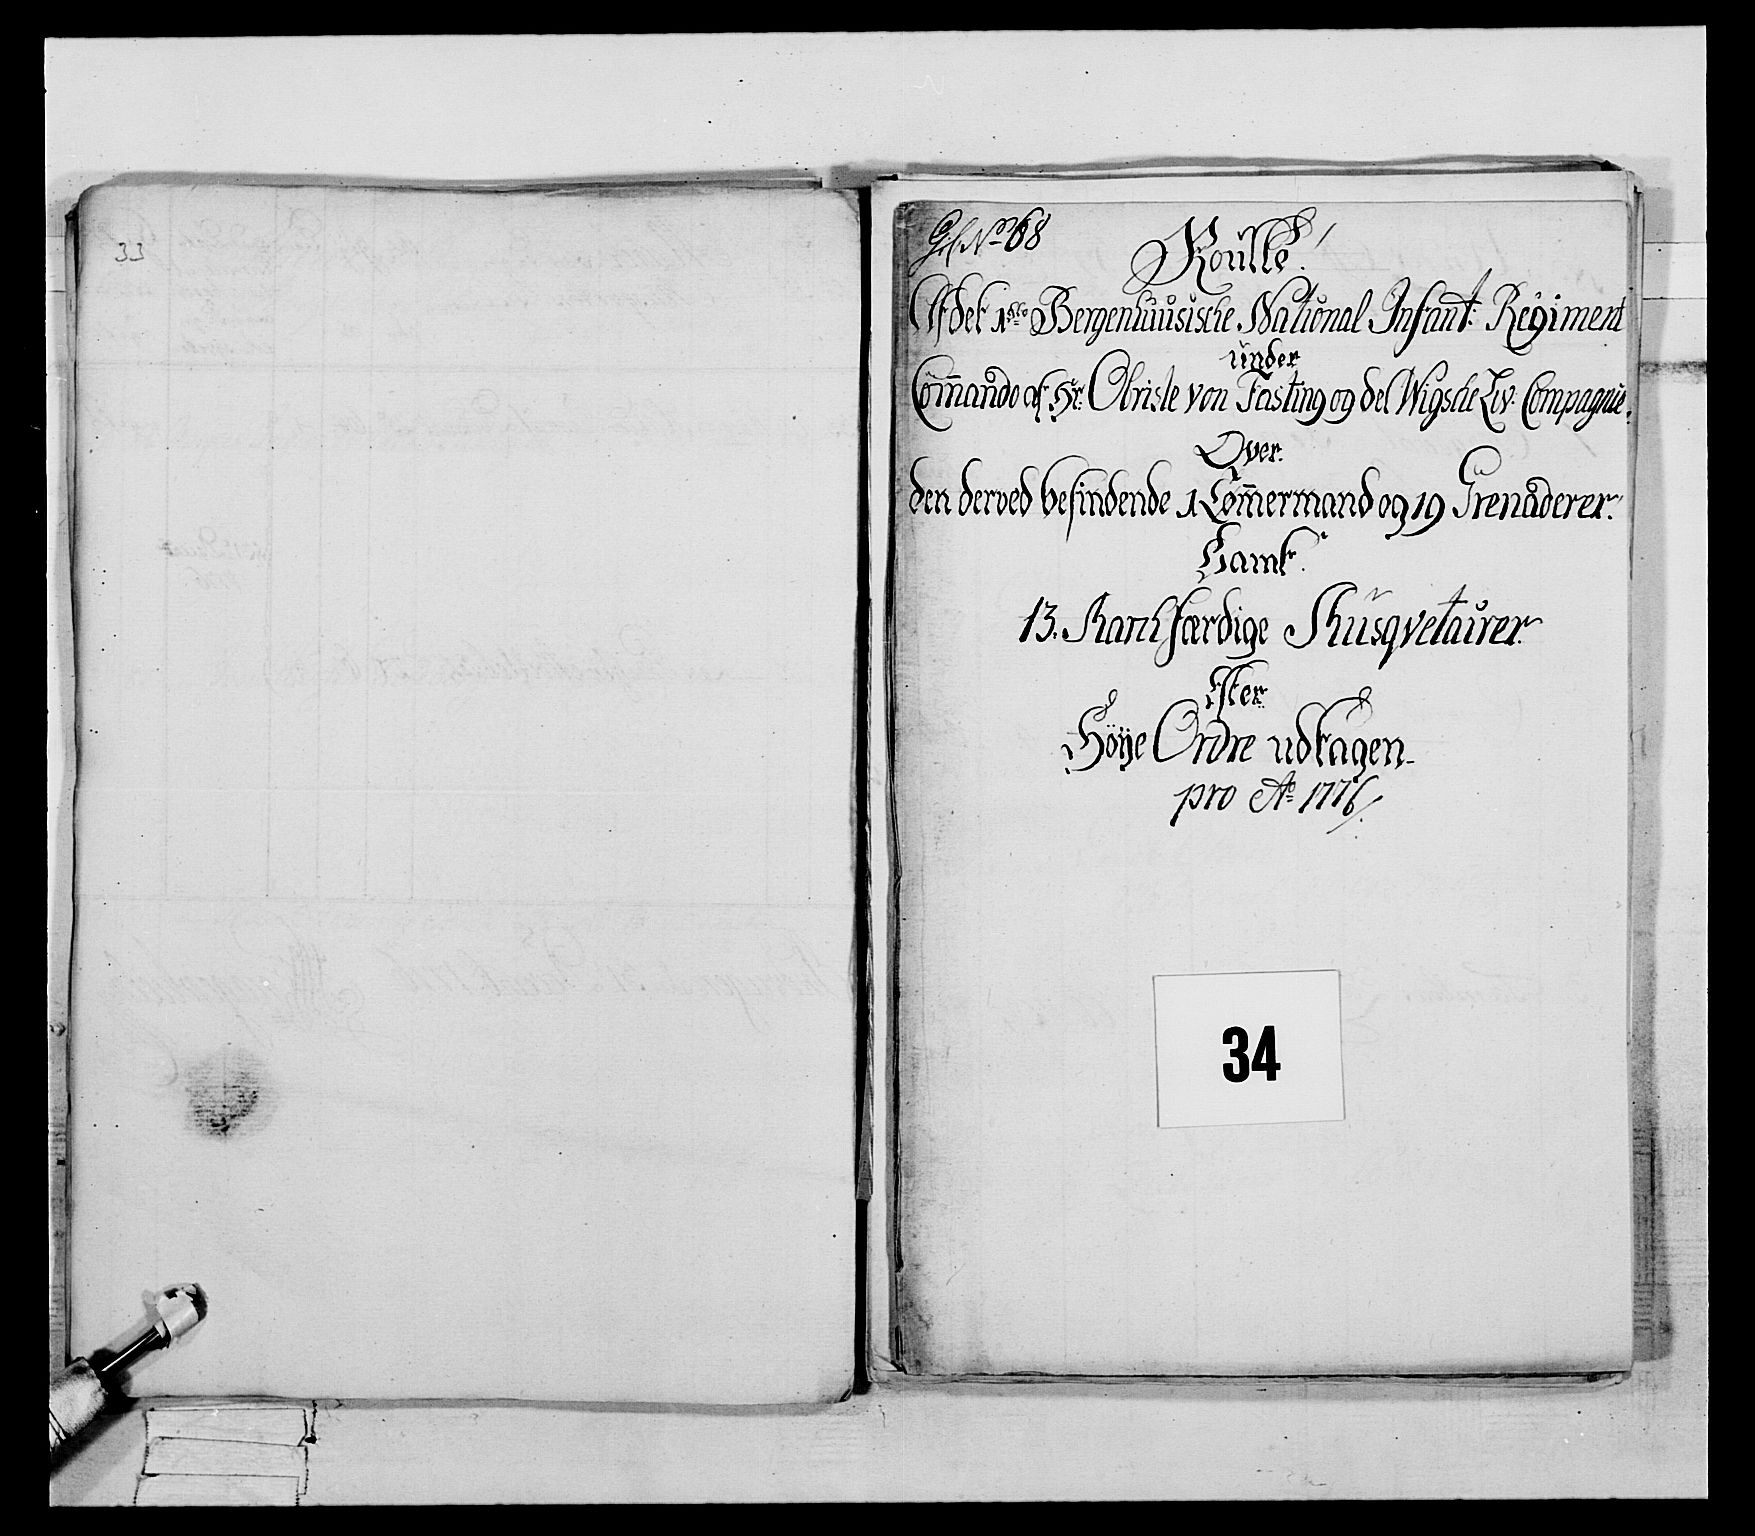 33
No 68
Roulle
Af det 1ste Bergenhuusische National Infant: Regiment
under
Commando af Hr: Obriste von Fasting og det Wigsche Liv: Compagnie.
Over
den derved befindende 1 Tømmermand og 19 Grenaderer.
Samt
13. March færdige Musqvetairer
Efter
Høye Ordre udtagen
pro Ao 1776
34